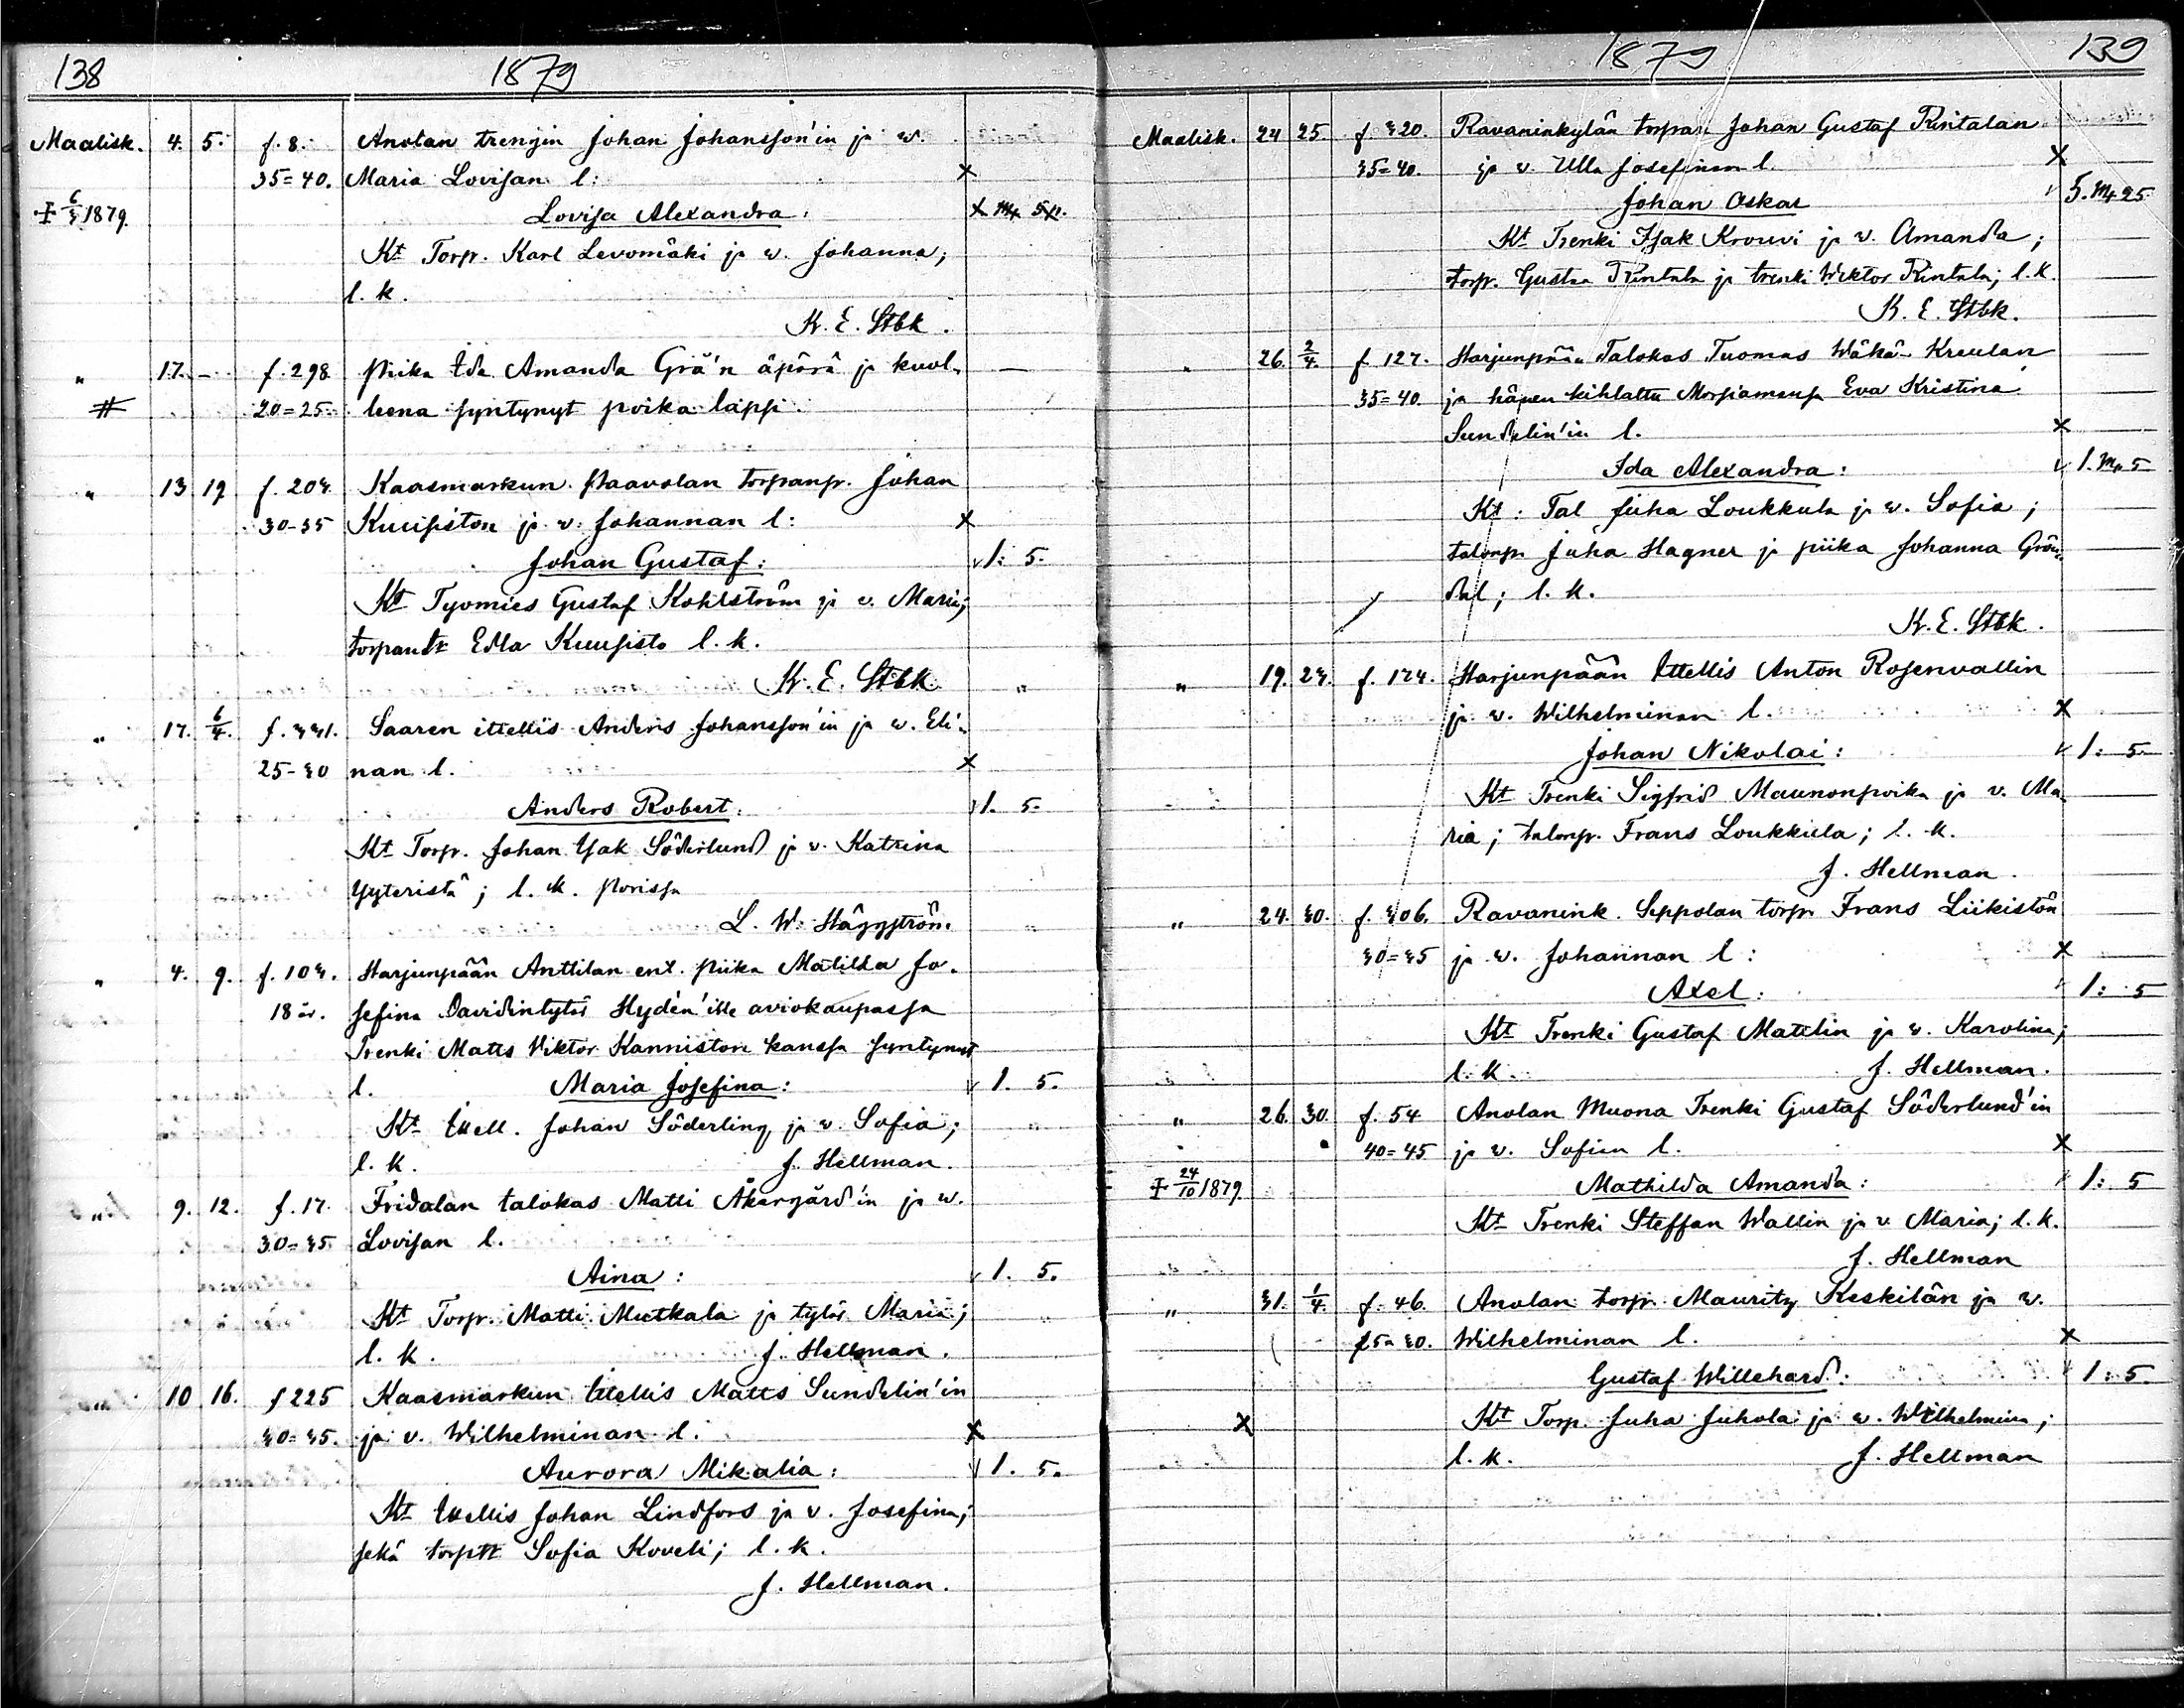 138
1879
Maalisk. 4. 5. f. 8. Anolan trengin Johan Johansson'in ja w.
35=40. Maria Lovisan l: X
‡ 6/3 1879. Lovisa Alexandra: X
Kt Torp. Karl Levomäki ja w. Johanna;
l. k.
K. E. Stbk.
" 17. - f. 298 Piika Ida Amanda Grä'n äpärä ja kuol- —
# 20=25. leena syntynyt poika lapsi.
" 13 19 f. 203. Kaasmarkun Paavolan torpanp. Johan
30-35 Kuusiston ja w. Johannan l: X
Johan Gustaf: 1: 5.
Kt Tyomies Gustaf Kohlström ja v. Maria;
torpantr Edla Kuusisto l. k.
K. E. Stbk "
" 17. 6/4. f. 331. Saaren itellis Anders Johansson'in ja w. Eli-
25-30 nan l. X
Anders Robert. 1. 5.
Kt Torp. Johan Isak Söderlund ja v. Katrina
Yyteristä; l. k. Porissa
L. W. Häggström. "
" 4. 9. f. 103. Harjunpään Anttilan ent. piika Matilda Jo-
18 år. sefina Davidintytär Hydén'ille aviokaupassa
Trenki Matts Viktor Kanniston kanssa syntynyt
l. Maria Josefina: 1. 5.
Kt Itell. Johan Söderling ja w. Sofia; "
l. k. J. Hellman.
" 9. 12. f. 17. Fridalan talokas Matti Åkergård'in ja w.
30=35 Lovisan l.
Aina: 1. 5.
Kt Torp. Matti Mutkala ja tytär Maria; "
l. k. J. Hellman.
10 16. f 225 Kaasmarkun Itellis Matts Sundelin'in
30=35. ja v. Wilhelminan l. X
Aurora Mikalia: 1. 5.
Kt Itellis Johan Lindfors ja v. Josefina;
sekä torptr Sofia Koveli; l. k.
J. Hellman.
1879
139
Maalisk. 24 25. f. 320. Ravaninkylän torpan Johan Gustaf Rintalan
35=40. ja v. Ulla Josefinan l. X
Johan Oskar 5. Mk 25
Kt Trenki Isak Krouvi ja v. Amanda;
torp. Gustaa Rintala ja trenki Wiktor Rintala; l. k.
K. E. Stbk.
" 26. 2/4. f. 127. Harjunpään Talokas Tuomas Wähä-Kreulan
35=40. ja hänen kihlattu Morsiamensa Eva Kristina
Sundelin'in l. X
Ida Alexandra: 1. Mk 5
Kt: Tal Juha Loukkula ja w. Sofia;
talonp. Juha Hagner ja piika Johanna Grön-
dal; l. k.
K. E. Stbk.
" 19. 23. f. 124. Harjunpään Itellis Anton Rosenvallin
ja w. Wilhelminan l. X
Johan Nikolai: 1: 5
Kt Trenki Sigfrid Maunonpoika ja v. Ma-
ria; talonp. Frans Loukkula; l. k.
J. Hellman.
" 24. 30. f. 306. Ravanink. Seppolan torp. Frans Liikistön
30=35 ja w. Johannan l: X
Axel: 1: 5
Kt Trenki Gustaf Mattlin ja w. Karolina;
l. k. J. Hellman.
" 26. 30. f. 54 Anolan Muona Trenki Gustaf Söderlund'in
40=45 ja w. Sofian l. X
‡ 24/10 1879. Mathilda Amanda: 1: 5
Kt Trenki Steffan Wallin ja v. Maria; l. k.
J. Hellman
" 31. 1/4. f. 46. Anolan torp. Mauritz Keskilän ja w.
25=30. Wilhelminan l. X
Gustaf Willehard: 1: 5.
X Kt Torp. Juha Juhola ja w. Wilhelmina;
l. k. J. Hellman